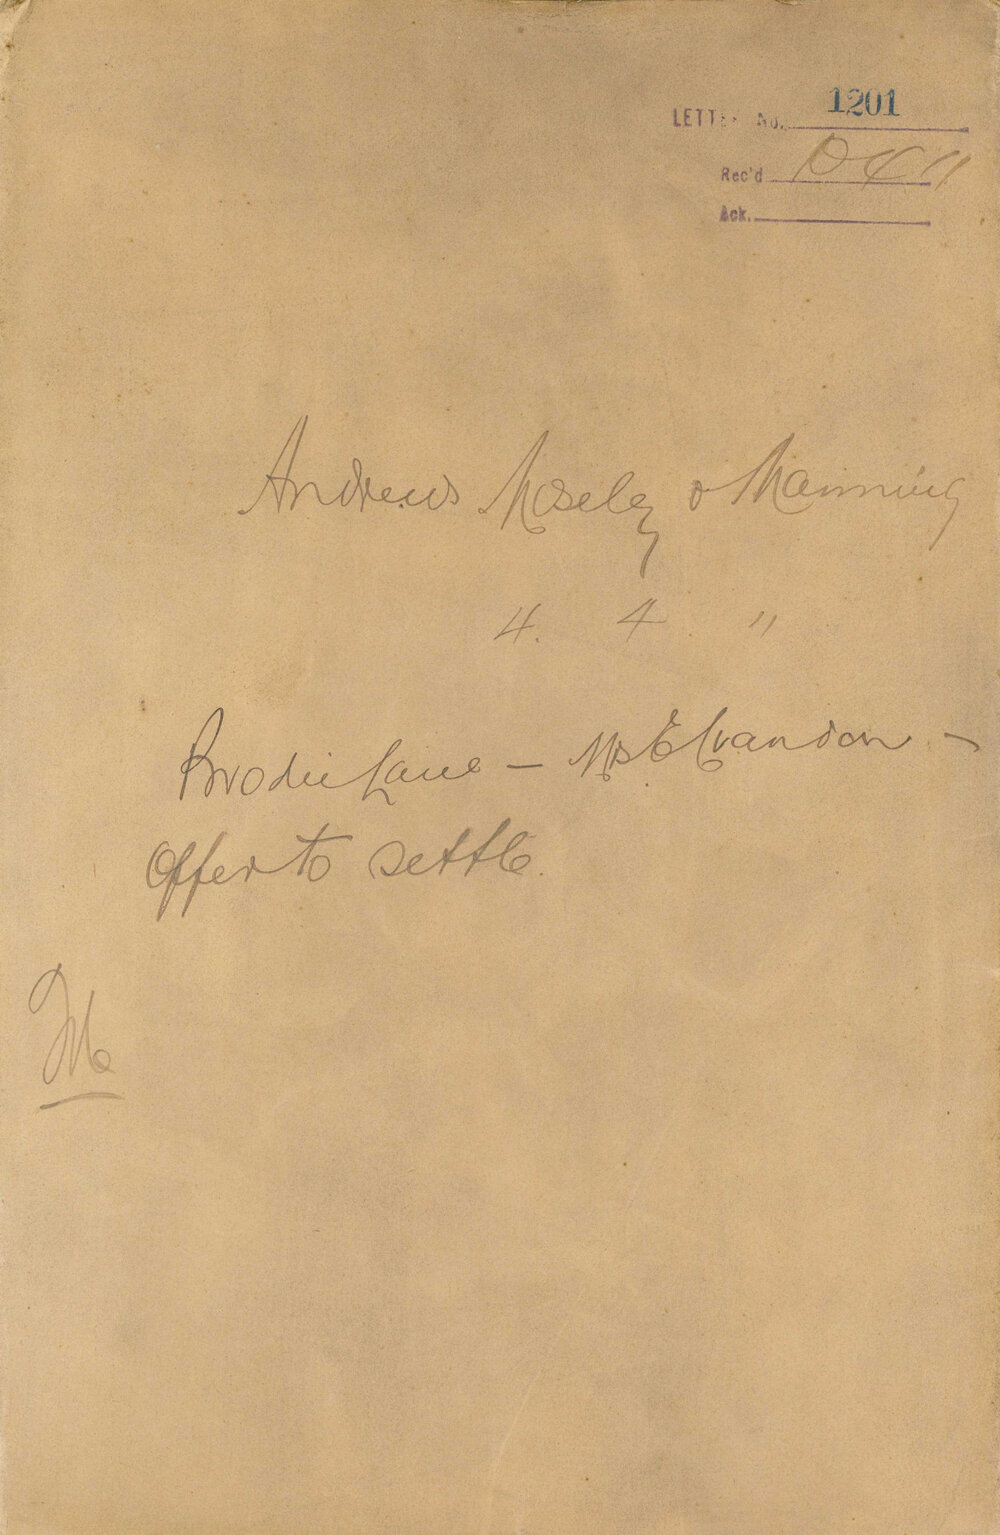 LETTER No. 1201
Rec'd 10 4 11
Ack.
Andrews Mosely & Manning
4. 4 "
Brodie Lane – Mrs E Crandon –
Offer to settle.